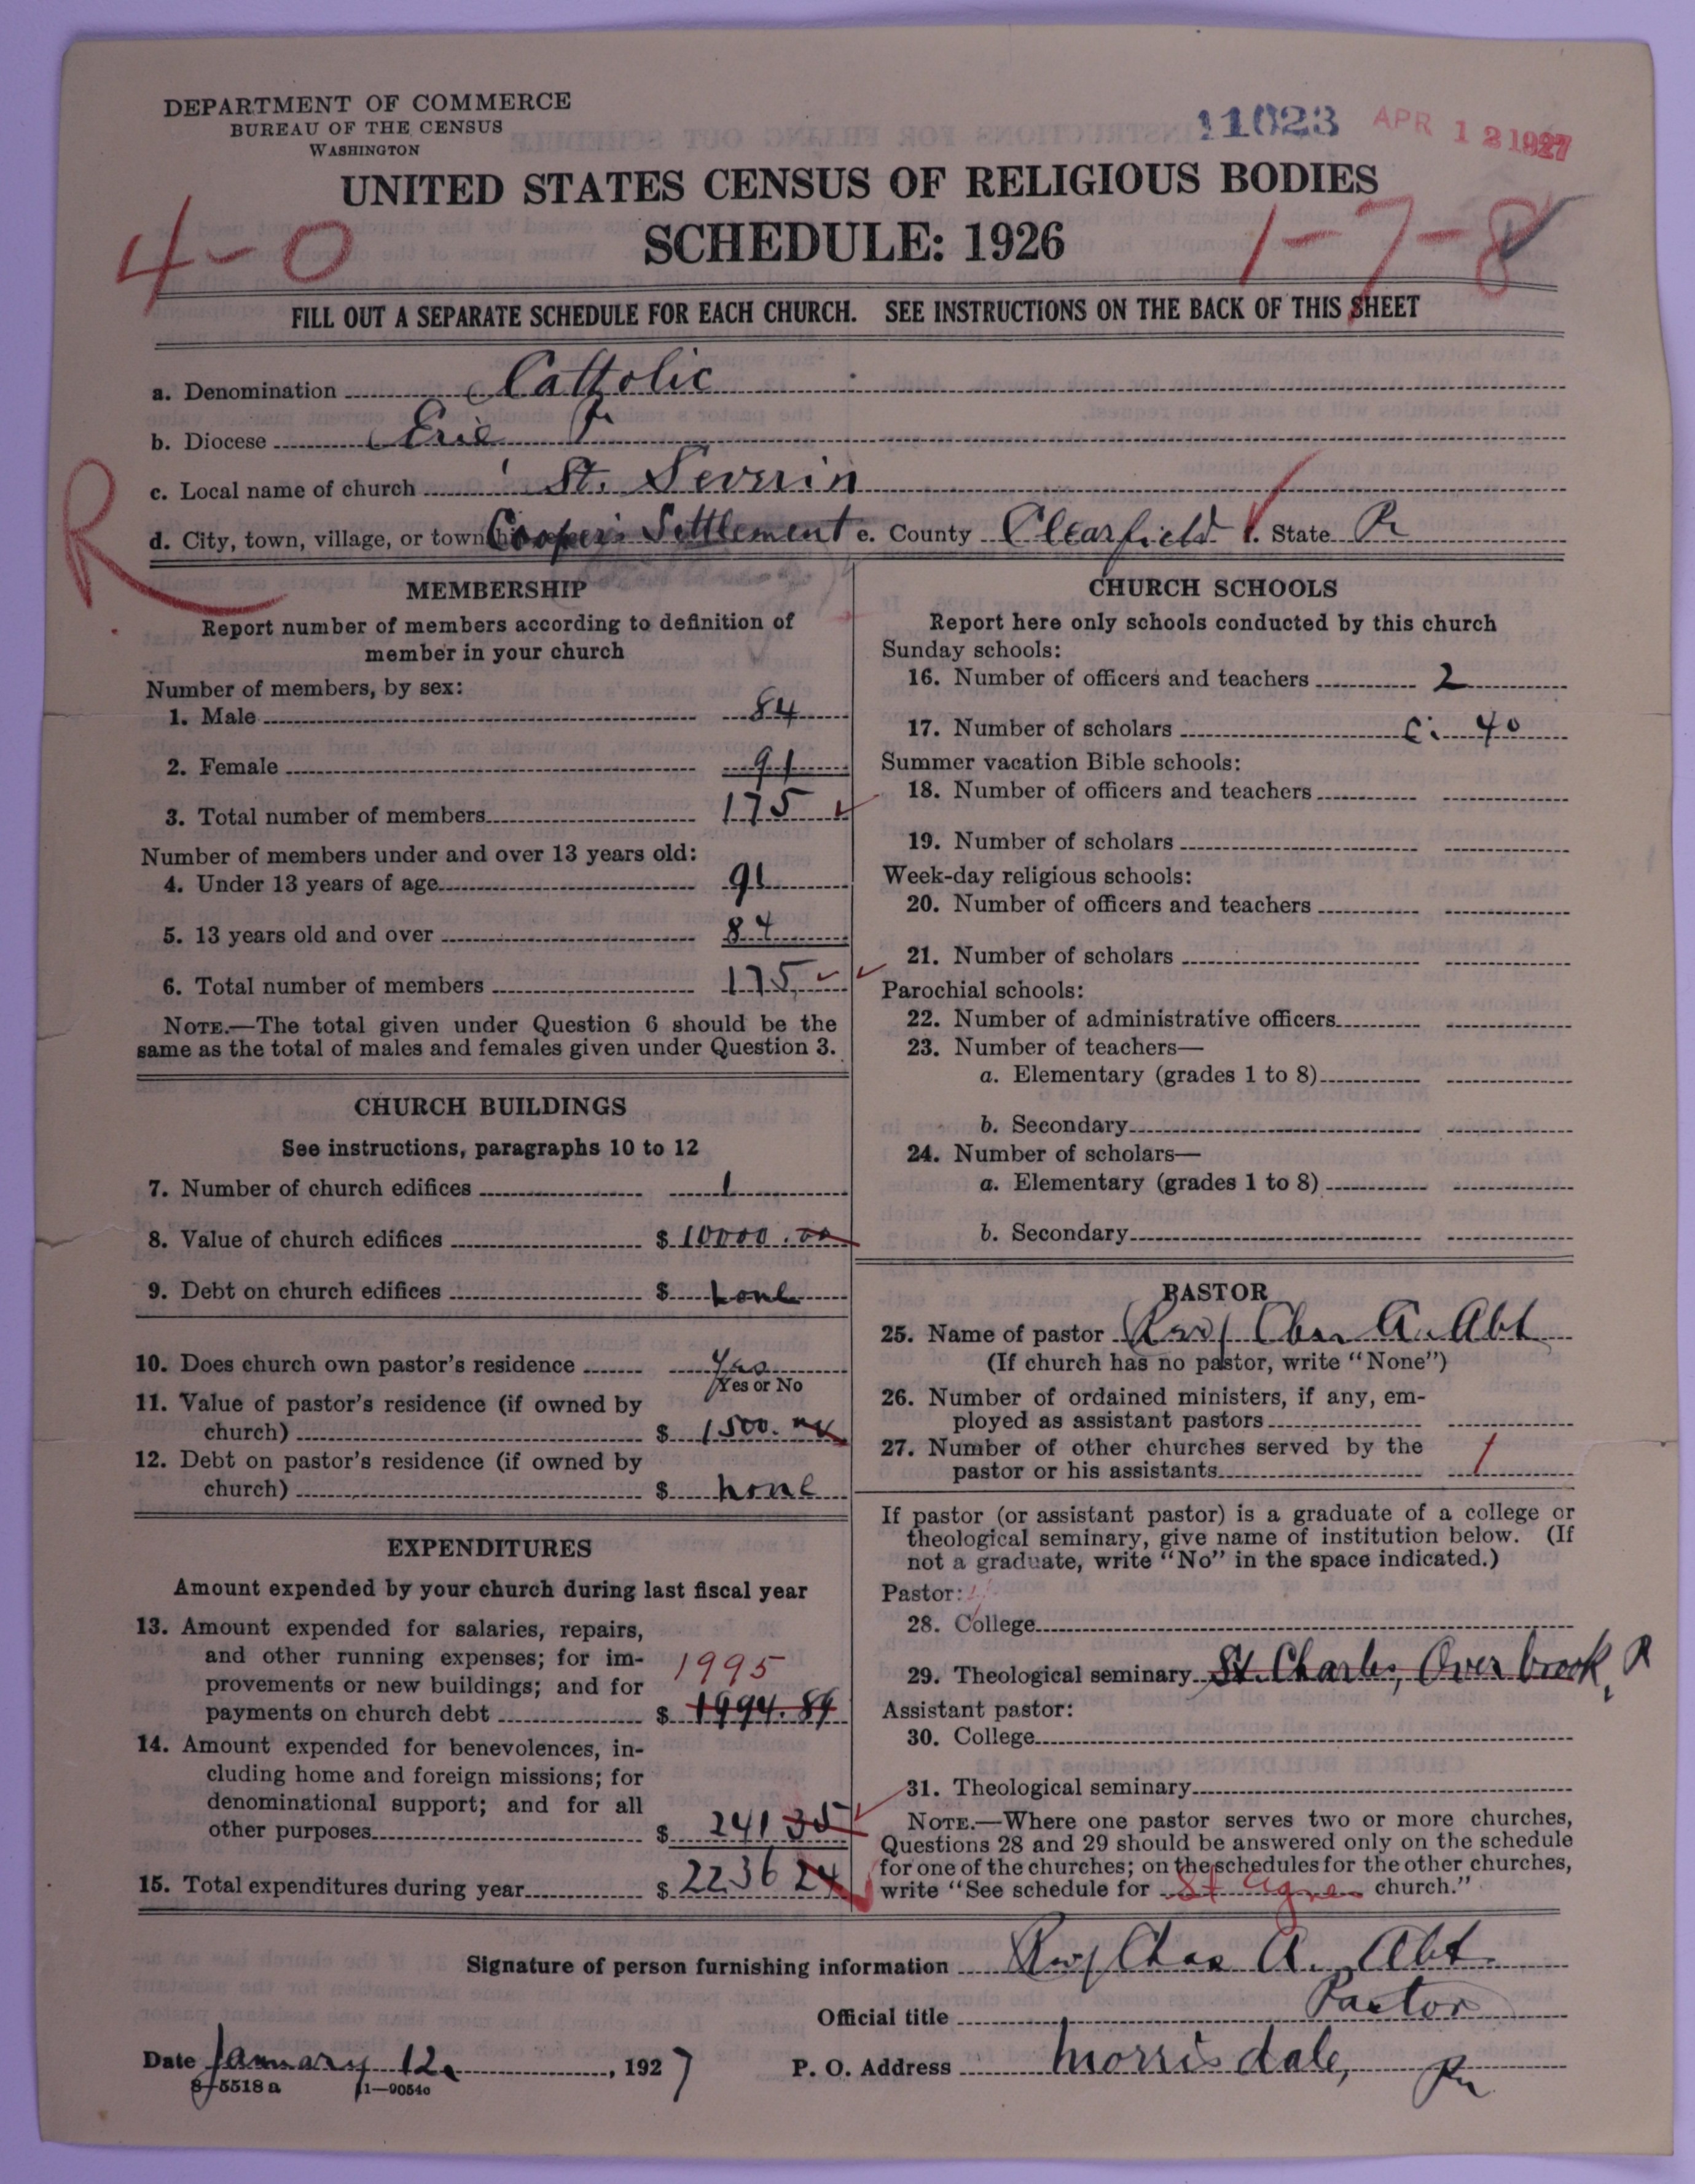 DEPARTMENT OF COMMERCE
BUREAU OF THE CENSUS
WASHINGTON
11023
APR 12 1927
UNITED STATES CENSUS OF RELIGIOUS BODIES
SCHEDULE: 1926
4-0
1-7-8
FILL OUT A SEPARATE SCHEDULE FOR EACH CHURCH. SEE INSTRUCTIONS ON THE BACK OF THIS SHEET
a. Denomination Catholic
b. Diocese Erie Pa
c. Local name of church St. Severin
R
d. City, town, village, or township Cooper's Settlement e. County Clearfield f. State Pa
MEMBERSHIP
Report number of members according to definition of
member in your church
Number of members, by sex:
1. Male 84
2. Female 91
3. Total number of members 175
Number of members under and over 13 years old:
4. Under 13 years of age 91
5. 13 years old and over 84
6. Total number of members 175
NOTE.—The total given under Question 6 should be the
same as the total of males and females given under Question 3.
CHURCH BUILDINGS
See instructions, paragraphs 10 to 12
7. Number of church edifices 1
8. Value of church edifices $ 10000.00
9. Debt on church edifices $ none
10. Does church own pastor's residence Yes
Yes or No
11. Value of pastor's residence (if owned by
church) $ 1500.
12. Debt on pastor's residence (if owned by
church) $ none
EXPENDITURES
Amount expended by your church during last fiscal year
13. Amount expended for salaries, repairs,
and other running expenses; for im-
provements or new buildings; and for 1995
payments on church debt $ 1994.89
14. Amount expended for benevolences, in-
cluding home and foreign missions; for
denominational support; and for all
other purposes $ 241 35
15. Total expenditures during year $ 2236 24
CHURCH SCHOOLS
Report here only schools conducted by this church
Sunday schools:
16. Number of officers and teachers 2
17. Number of scholars 40
Summer vacation Bible schools:
18. Number of officers and teachers
19. Number of scholars
Week-day religious schools:
20. Number of officers and teachers
21. Number of scholars
Parochial schools:
22. Number of administrative officers
23. Number of teachers—
a. Elementary (grades 1 to 8)
b. Secondary
24. Number of scholars—
a. Elementary (grades 1 to 8)
b. Secondary
PASTOR
25. Name of pastor Rev Chas A. Abt
(If church has no pastor, write "None")
26. Number of ordained ministers, if any, em-
ployed as assistant pastors
27. Number of other churches served by the
pastor or his assistants 1
If pastor (or assistant pastor) is a graduate of a college or
theological seminary, give name of institution below. (If
not a graduate, write "No" in the space indicated.)
Pastor:
28. College
29. Theological seminary St. Charles, Overbrook, Pa
Assistant pastor:
30. College
31. Theological seminary
NOTE.—Where one pastor serves two or more churches,
Questions 28 and 29 should be answered only on the schedule
for one of the churches; on the schedules for the other churches,
write "See schedule for St Agnes church."
Signature of person furnishing information Rev Chas A. Abt
Official title Pastor
Date January 12, 1927 P. O. Address Morrisdale, Pa
8—5518 a 11—9054o